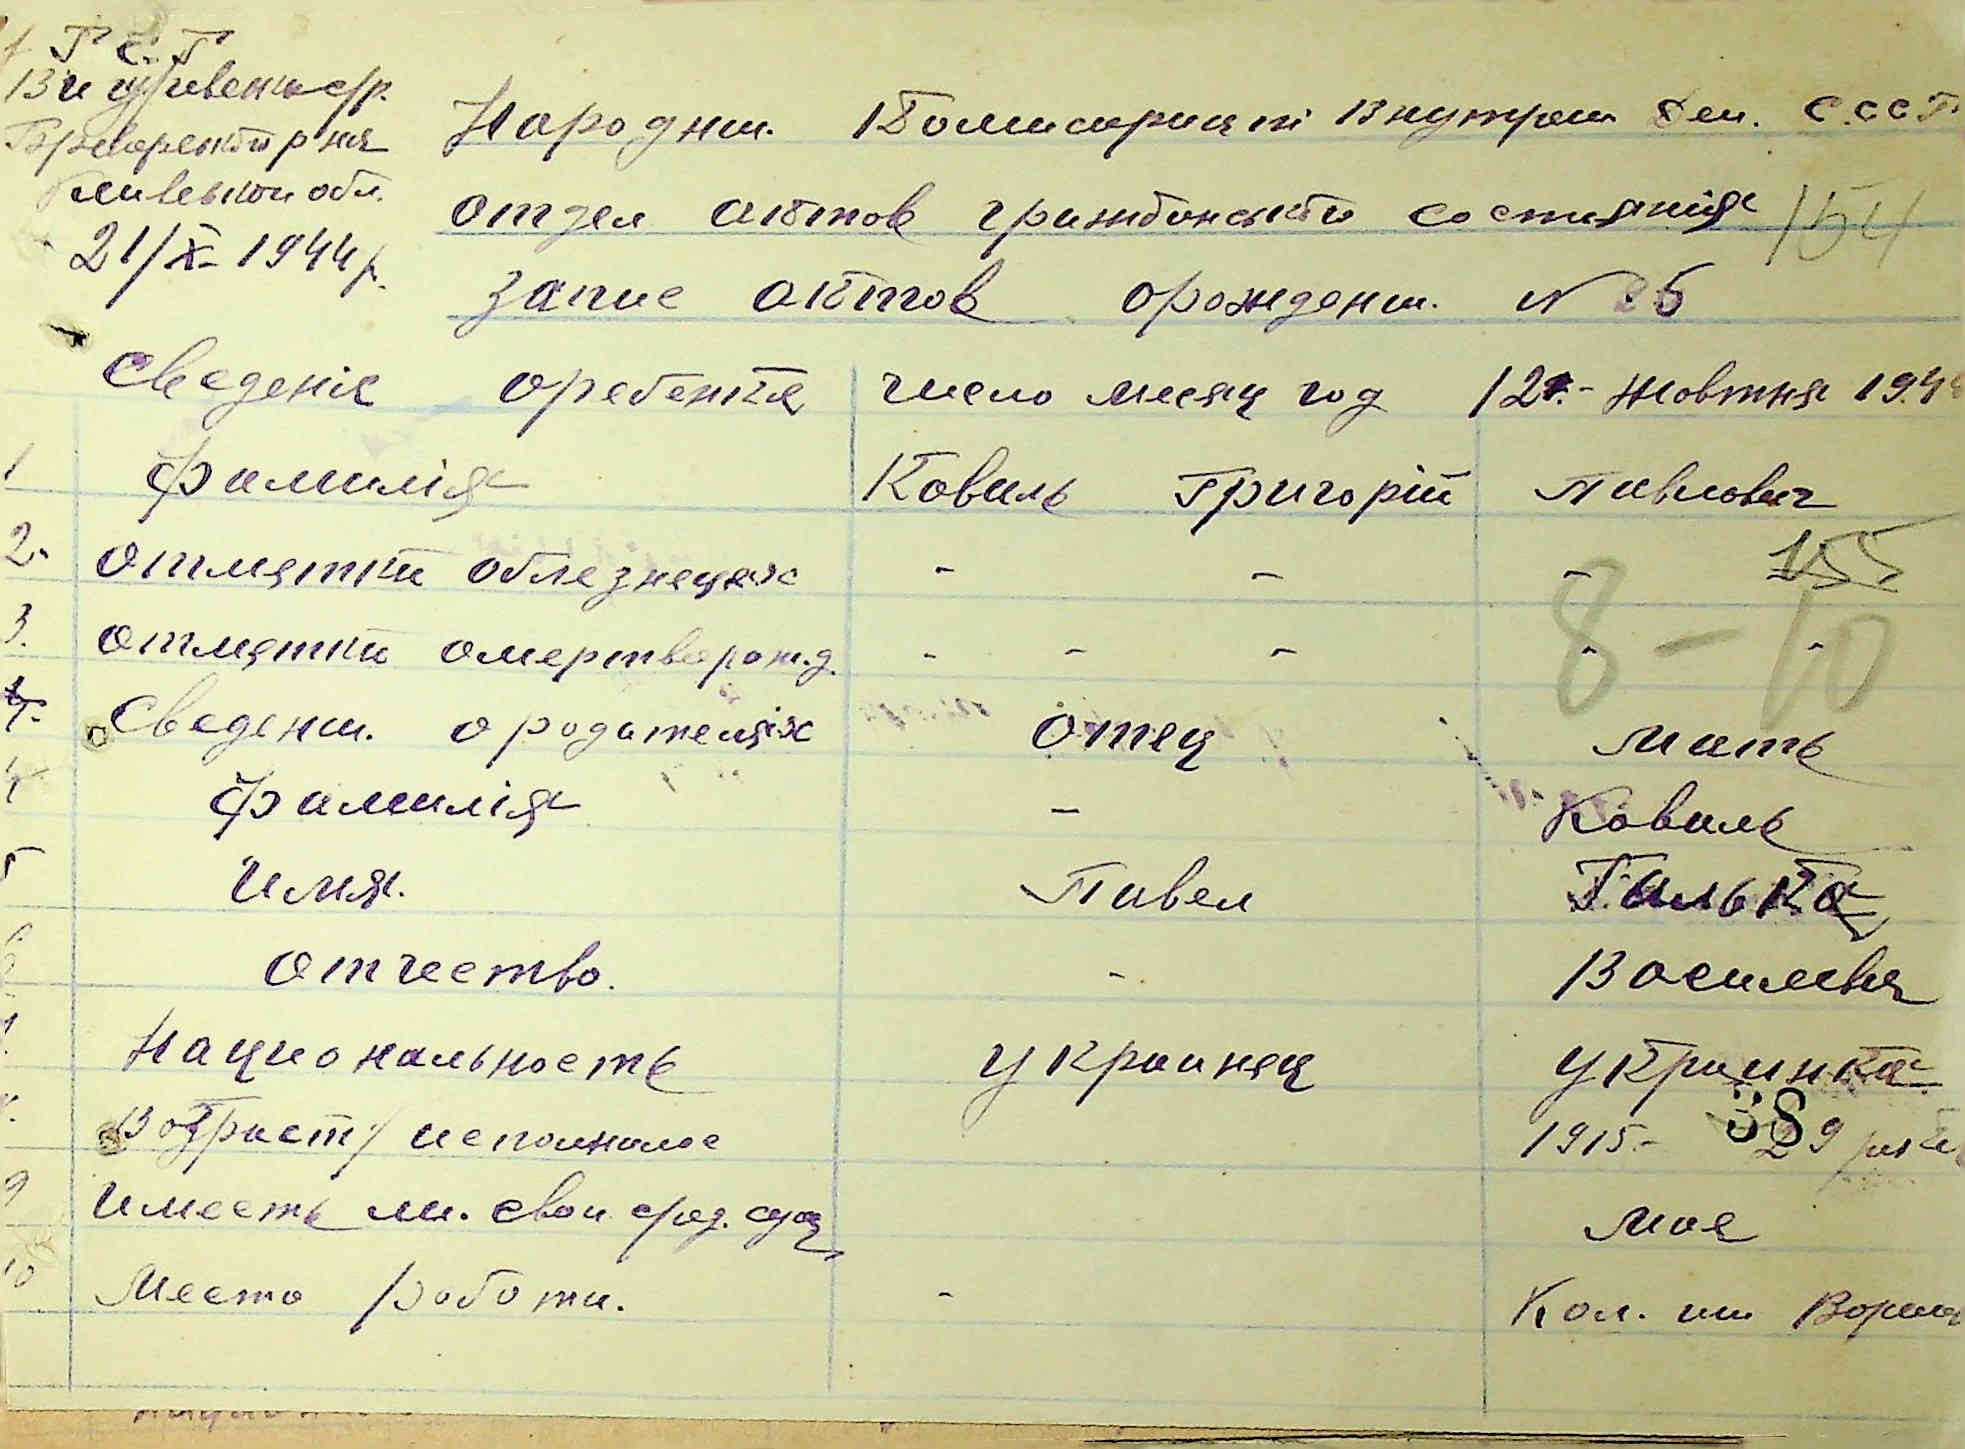 Р С. Р
21/X- 1944 р.
Народни. Комисарицт Внутрен Дел. С.ССР
отдел актов гражданского состояния 154
запис актов орождени. N
Сведеніе оребенке число месяц год 12.- жовтня 194
1 Фамилія Коваль Григорій Павлович
2. отметки облезнецах - - - 155
3. отметки омертворожд. - - - - -
8-10
4. Сведени. о родителях отец мать
4 Фамилія - Коваль
5 Имя. Павел Галька
6 отчество. - Василевна
Национальность украинец украинка
Возраст/ исполнилос 1915.- 29
9 Имееть ли. свои сред. сущ мае
10 Место роботи. - Кол. им Ворош